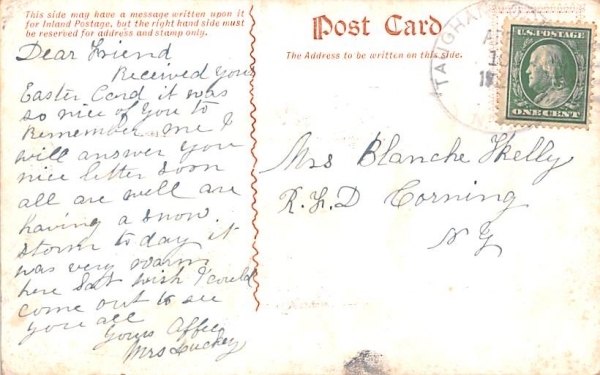 This side may have a message written upon it
for Inland Postage, but the right hand side must
be reserved for address and stamp only.
Dear Friend
Received your
Easter Card it was
so nice of you to
Remember me I
will answer your
nice letter soon
all are well are
having a snow
storm to day it
was very warm
here Sat wish I could
come out to see
you all
Yours Affec
Mrs Luckey
Post Card
The Address to be written on this side.
TAUGHA
U.S. POSTAGE
ONE CENT
Mrs Blanche Skelly
R.F.D Corning
N Y